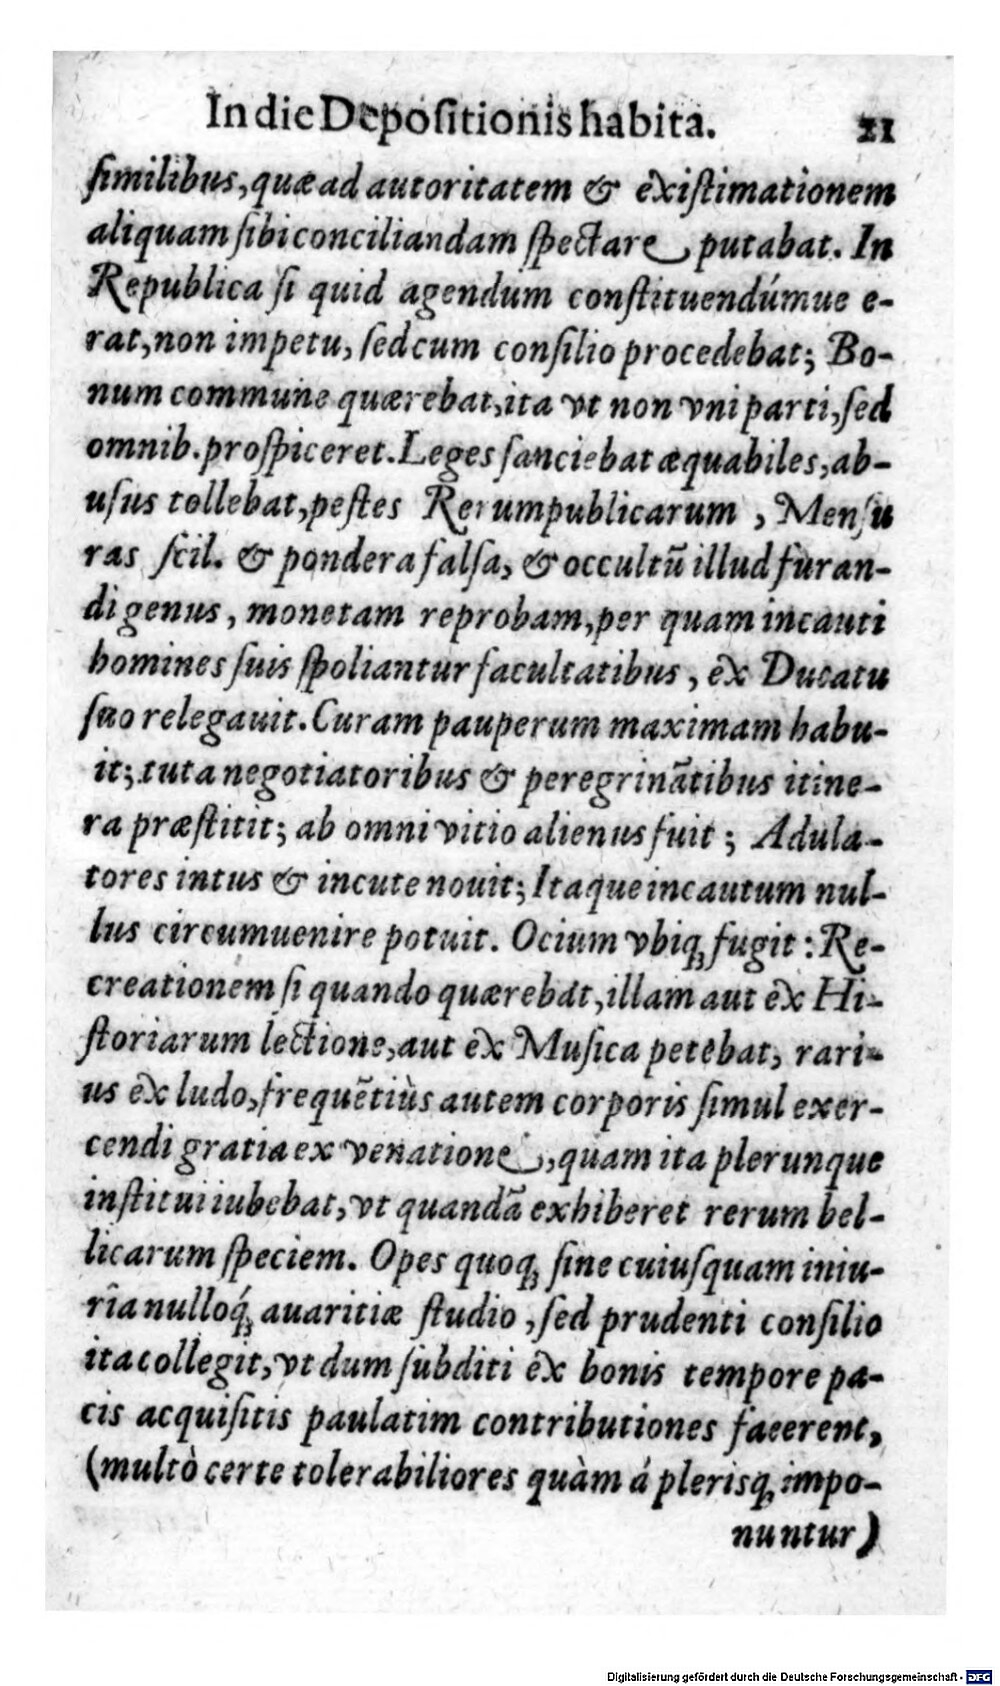 In die Depoſitionis habita. 21
ſimilibus, quæ ad autoritatem & exiſtimationem
aliquam ſibi conciliandam ſpectare putabat. In
Republica ſi quid agendum conſtituendúmue e-
rat, non impetu, ſed cum conſilio procedebat; Bo-
num commune quærebat, ita vt non vni parti, ſed
omnib. proſpiceret. Leges ſanciebat æquabiles, ab-
uſus tollebat, peſtes Rerumpublicarum, Menſu
ras ſcil. & pondera falſa, & occultũ illud furan-
di genus, monetam reprobam, per quam incauti
homines ſuis ſpoliantur facultatibus, ex Ducatu
ſuo relegauit. Curam pauperum maximam habu-
it; tuta negotiatoribus & peregrinãtibus itine-
ra præſtitit; ab omni vitio alienus fuit; Adula-
tores intus & in cute nouit; Itaque incautum nul-
lus circumuenire potuit. Ocium vbiq; fugit: Re-
creationem ſi quando quærebat, illam aut ex Hi-
ſtoriarum lectione, aut ex Muſica petebat, rari-
us ex ludo, frequẽtiùs autem corporis ſimul exer-
cendi gratia ex venatione, quam ita plerunque
inſtitui iubebat, vt quandã exhiberet rerum bel-
licarum ſpeciem. Opes quoq; ſine cuiuſquam iniu-
ria nulloq́; auaritiæ ſtudio, ſed prudenti conſilio
ita collegit, vt dum ſubditi ex bonis tempore pa-
cis acquiſitis paulatim contributiones facerent,
(multò certe tolerabiliores quàm á plerisq; impo-
nuntur)
Digitalisierung gefördert durch die Deutsche Forschungsgemeinschaft - DFG